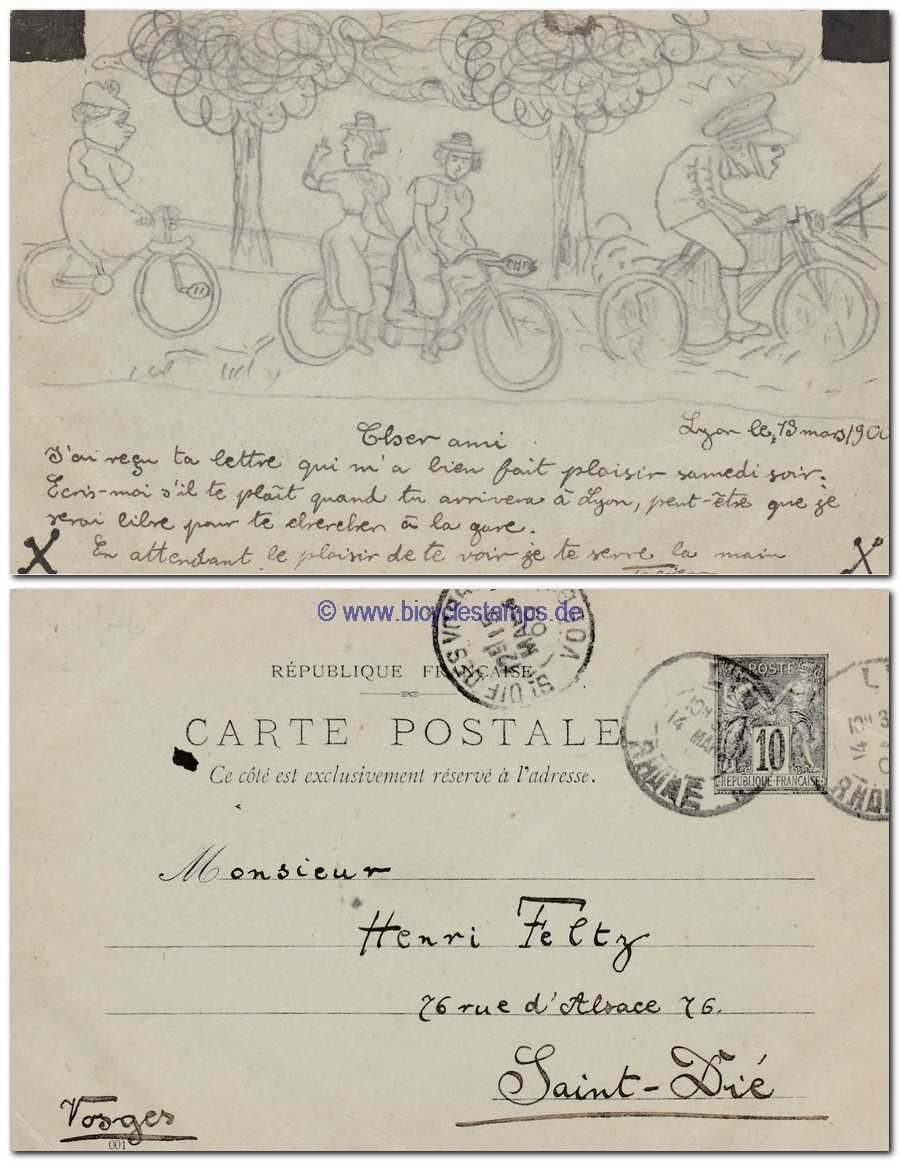 Lyon le, 13 mars 1900
Cher ami
J'ai reçu ta lettre qui m'a bien fait plaisir samedi soir.
Ecris-moi s'il te plaît quand tu arrivera à Lyon, peut-être que je
serai libre pour te chercher à la gare.
En attendant le plaisir de te voir je te serre la main
© www.bicyclestamps.de
ST DIE DES VOSGES
VOSGES
RÉPUBLIQUE FRANÇAISE
CARTE POSTALE
Ce côté est exclusivement réservé à l'adresse.
POSTES
10
RÉPUBLIQUE FRANÇAISE
14 MARS
RHONE
14
RHONE
Monsieur
Henri Feltz
76 rue d'Alsace 76.
Saint-Dié
Vosges
001